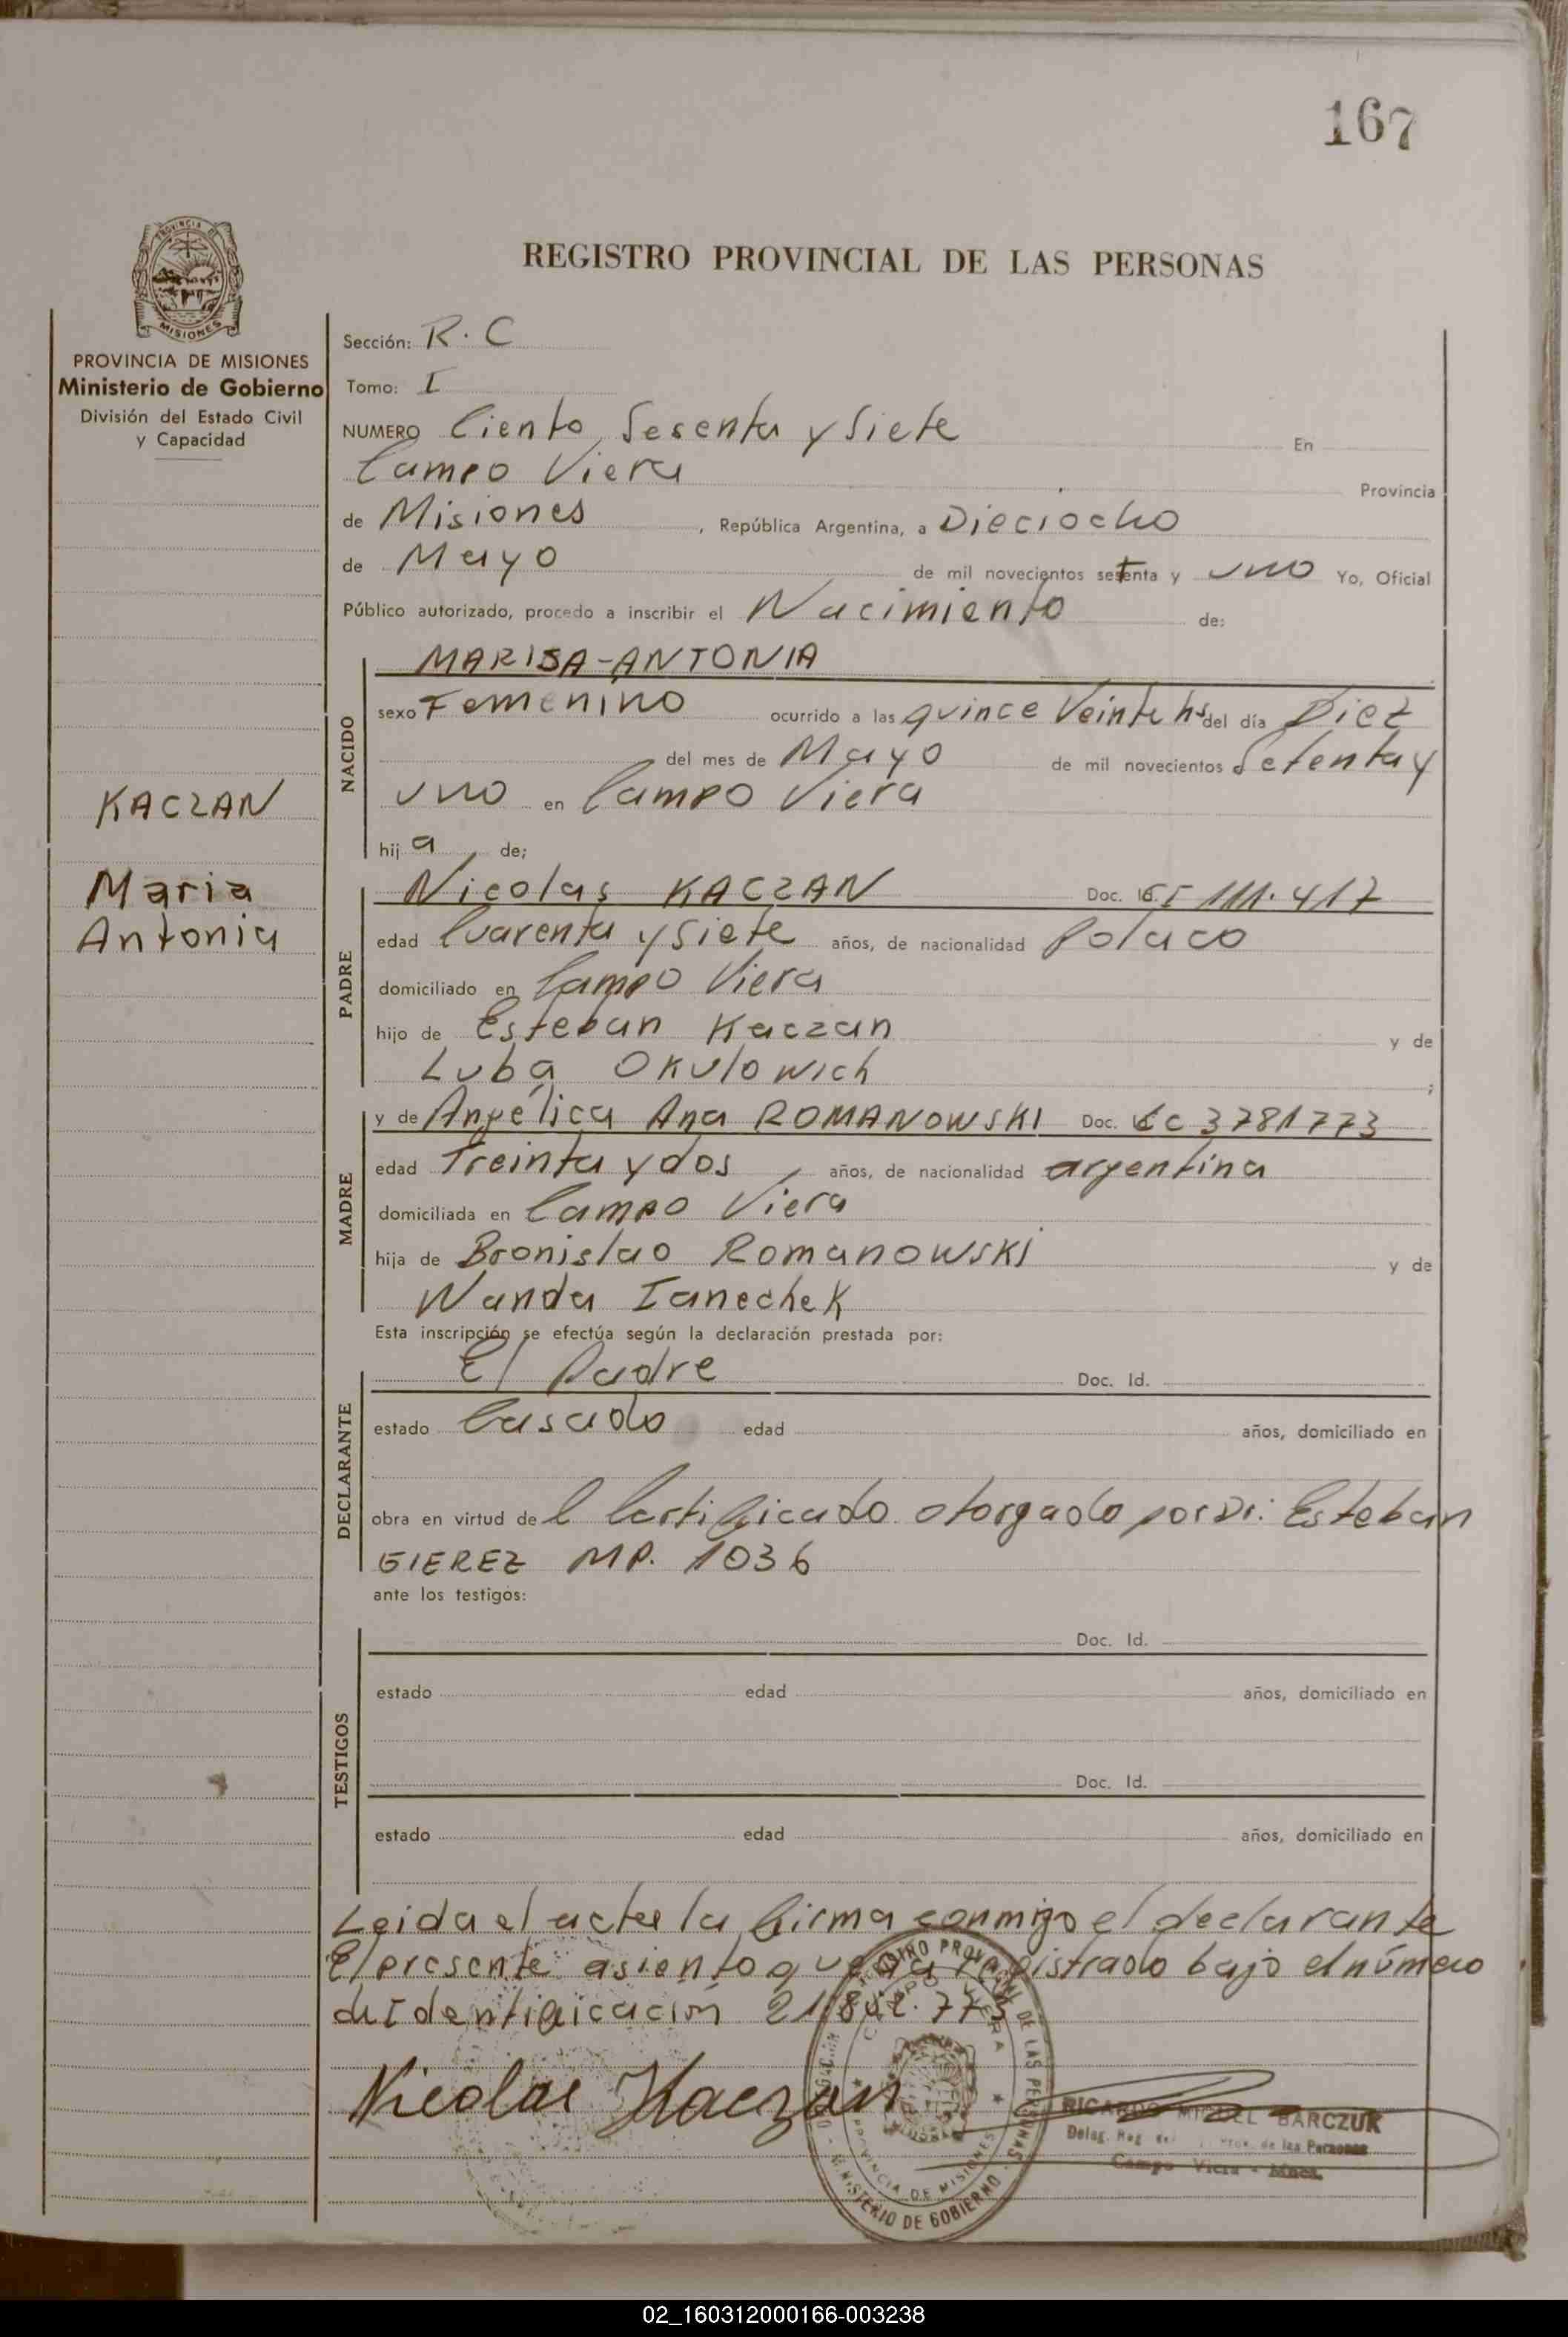 167
PROVINCIA DE MISIONES
Ministerio de Gobierno
División del Estado Civil
y Capacidad
KACZAN
Maria
Antonia
REGISTRO PROVINCIAL DE LAS PERSONAS
Sección: R. C
Tomo: I
NUMERO Ciento Sesenta y Siete En
Campo Viera Provincia
de Misiones, República Argentina, a Dieciocho
de Mayo de mil novecientos setenta y uno Yo, Oficial
Público autorizado, procedo a inscribir el Nacimiento de:
NACIDO
MARISA-ANTONIA
sexo Femenino ocurrido a las quince Veinte hs del día Diez
del mes de Mayo de mil novecientos Setenta y
uno en Campo Viera
hija de;
PADRE
Nicolas KACZAN Doc. 111.417
edad Cuarenta y Siete años, de nacionalidad Polaco
domiciliado en Campo Viera
hijo de Esteban Kaczan y de
Luba Okulowich ;
MADRE
y de Angélica Ana ROMANOWSKI Doc. 3781773
edad Treinta y dos años, de nacionalidad argentina
domiciliada en Campo Viera
hija de Bronislao Romanowski y de
Wanda Ianechek
Esta inscripción se efectúa según la declaración prestada por:
DECLARANTE
El Padre Doc. Id.
estado Casado edad años, domiciliado en
obra en virtud del Certificado otorgado por Dr: Esteban
GIEREZ MP. 1036
ante los testigos:
TESTIGOS
Doc. Id.
estado edad años, domiciliado en
Doc. Id.
estado edad años, domiciliado en
Leida el acta la firma conmigo el declarante
El presente asiento queda registrado bajo el número
de Identificación
Nicolas Kaczan
REGISTRO PROVINCIAL DE LAS PERSONAS
CAMPO VIERA
PROVINCIA DE MISIONES
MINISTERIO DE GOBIERNO
RICARDO MIGUEL BARCZUK
Deleg. Reg. Prov. de las Personas
Campo Viera - Mnes.
02_160312000166-003238